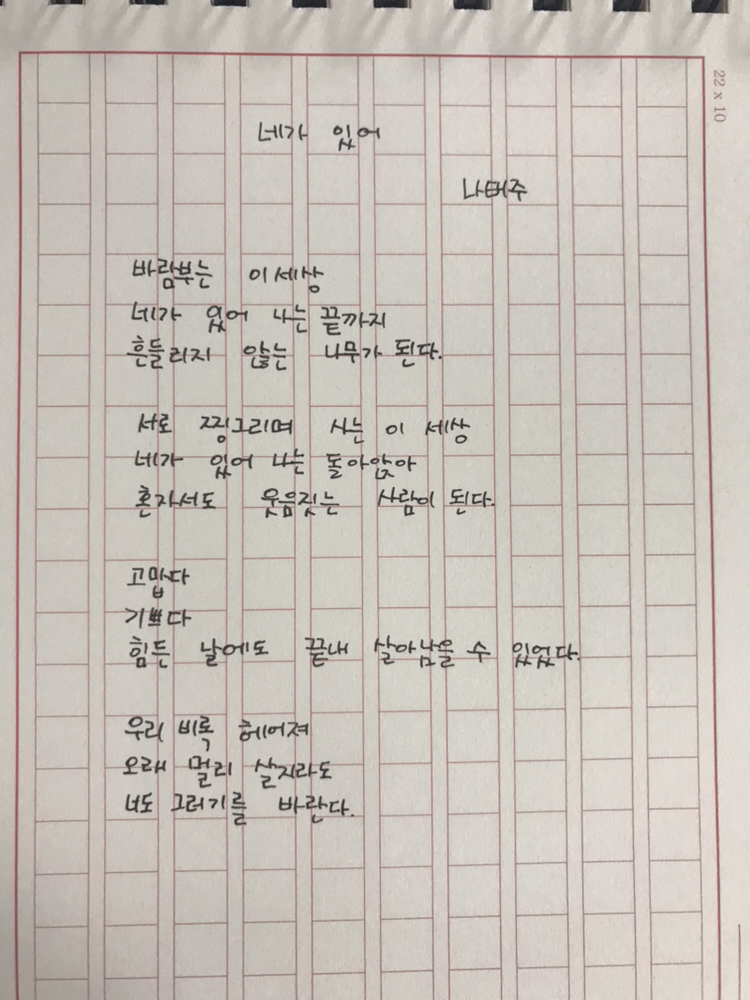 22 x 10
네가 있어
나태주
바람부는 이 세상
네가 있어 나는 끝까지
흔들리지 않는 나무가 된다.
서로 찡그리며 사는 이 세상
네가 있어 나는 돌아앉아
혼자서도 웃음짓는 사람이 된다.
고맙다
기쁘다
힘든 날에도 끝내 살아남을 수 있었다.
우리 비록 헤어져
오래 멀리 살지라도
너도 그러기를 바란다.